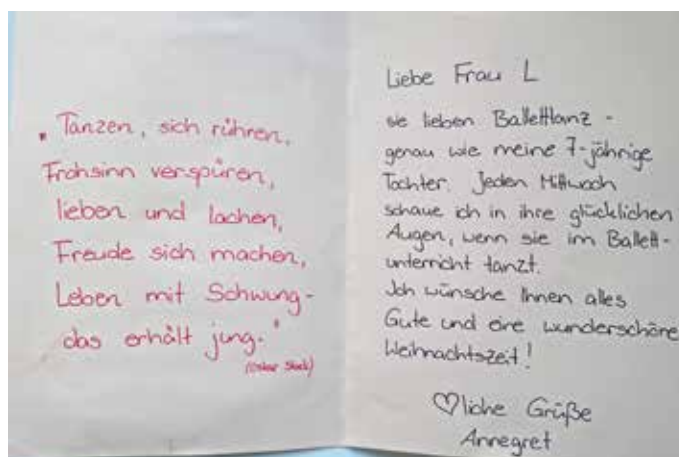 "Tanzen, sich rühren,
Frohsinn verspüren,
lieben und lachen,
Freude sich machen,
Leben mit Schwung-
das erhält jung."
Liebe Frau L
sie lieben Balletttanz -
genau wie meine 7-jährige
Tochter. Jeden Mittwoch
schaue ich in ihre glücklichen
Augen, wenn sie im Ballett-
unterricht tanzt.
Ich wünsche Ihnen alles
Gute und eine wunderschöne
Weihnachtszeit!
♡liche Grüße
Annegret